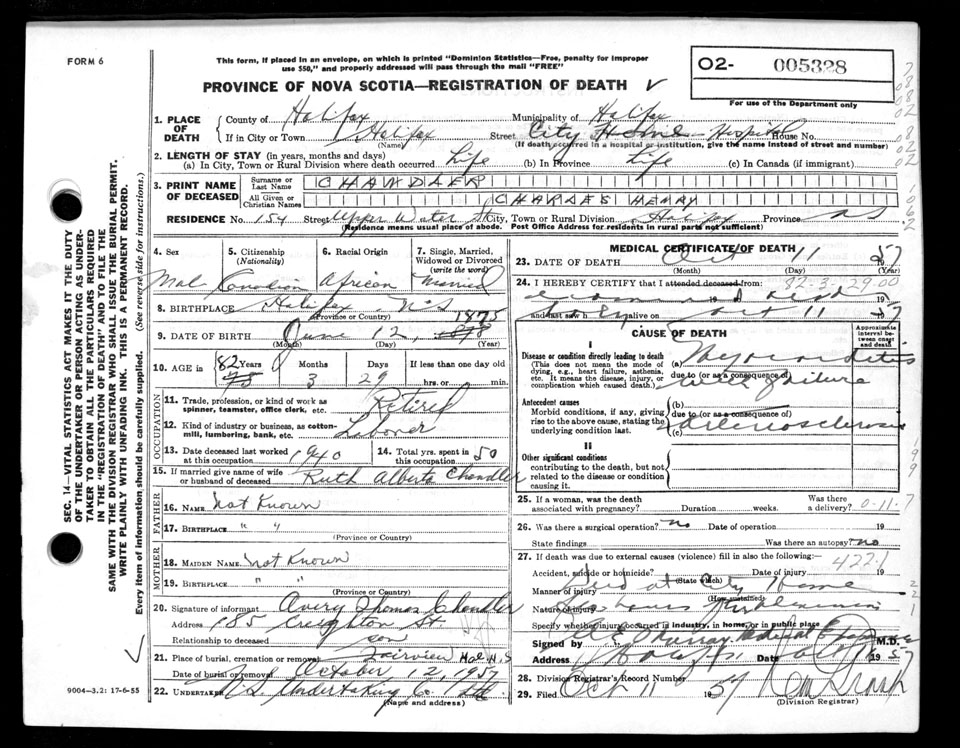 FORM 6
This form, if placed in an envelope, on which is printed "Dominion Statistics—Free, penalty for improper
use $50," and properly addressed will pass through the mail "FREE"
PROVINCE OF NOVA SCOTIA—REGISTRATION OF DEATH
O2- 005328
For use of the Department only
1. PLACE OF DEATH
County of Halifax Municipality of Halifax
If in City or Town Halifax (Name) Street City Home - Hospital House No.
(If death occurred in a hospital or institution, give the name instead of street and number)
2. LENGTH OF STAY (in years, months and days)
(a) In City, Town or Rural Division where death occurred Life (b) In Province Life (c) In Canada (if immigrant)
3. PRINT NAME OF DECEASED
Surname or Last Name CHANDLER
All Given or Christian Names CHARLES HENRY
RESIDENCE No. 154 Street Upper Water St City, Town or Rural Division Halifax Province NS
(Residence means usual place of abode. Post Office Address for residents in rural parts not sufficient)
4. Sex Male
5. Citizenship (Nationality) Canadian
6. Racial Origin African
7. Single, Married, Widowed or Divorced (write the word) Married
8. BIRTHPLACE Halifax N.S
(Province or Country)
1875
9. DATE OF BIRTH June 12, 1878
(Month) (Day) (Year)
10. AGE in 82 78 Years 3 Months 29 Days If less than one day old hrs. or min.
OCCUPATION
11. Trade, profession, or kind of work as spinner, teamster, office clerk, etc. Retired
12. Kind of industry or business, as cotton-mill, lumbering, bank, etc. Laborer
13. Date deceased last worked at this occupation 1940
14. Total yrs. spent in this occupation 50
15. If married give name of wife or husband of deceased Ruth Alberta Chandler
FATHER
16. NAME Not Known
17. BIRTHPLACE " "
(Province or Country)
MOTHER
18. MAIDEN NAME Not Known
19. BIRTHPLACE " "
(Province or Country)
20. Signature of informant Avery Thomas Chandler
Address 185 Creighton St.
Relationship to deceased son
21. Place of burial, cremation or removal Fairview Hal N.S
Date of burial or removal October 13, 1957
22. UNDERTAKER N.S. Undertaking Co.
(Name and address)
9004-3.2: 17-6-55
SEC. 14—VITAL STATISTICS ACT MAKES IT THE DUTY
OF THE UNDERTAKER OR PERSON ACTING AS UNDER-
TAKER TO OBTAIN ALL THE PARTICULARS REQUIRED
IN THE "REGISTRATION OF DEATH" AND TO FILE THE
SAME WITH THE DIVISION REGISTRAR WHO SHALL ISSUE THE BURIAL PERMIT.
WRITE PLAINLY WITH UNFADING INK. THIS IS A PERMANENT RECORD.
Every item of information should be carefully supplied. (See reverse side for instructions.)
MEDICAL CERTIFICATE OF DEATH
23. DATE OF DEATH Oct 11 1957
(Month) (Day) (Year)
24. I HEREBY CERTIFY that I attended deceased from: 82-3-29.00
and last saw h alive on Oct 11 1957
CAUSE OF DEATH
Approximate interval between onset and death
I
Disease or condition directly leading to death
(This does not mean the mode of dying, e.g., heart failure, asthenia, etc. It means the disease, injury, or complication which caused death.)
(a) Myocarditis
due to (or as a consequence of)
failure
Antecedent causes
Morbid conditions, if any, giving rise to the above cause, stating the underlying condition last.
(b)
due to (or as a consequence of)
(c) Arteriosclerosis
II
Other significant conditions
contributing to the death, but not related to the disease or condition causing it.
25. If a woman, was the death associated with pregnancy? Duration weeks. Was there a delivery? 0-11-7
26. Was there a surgical operation? no Date of operation 19
State findings Was there an autopsy? no
27. If death was due to external causes (violence) fill in also the following:
422.1
Accident, suicide or homicide? (State which) Date of injury 19
Manner of injury Died at City Home
(How sustained)
Nature of injury
Specify whether injury occurred in industry, in home, or in public place
Signed by Murray Medical M.D.
Address Halifax Date Oct 11 1957
28. Division Registrar's Record Number
29. Filed Oct 11 1957
(Division Registrar)